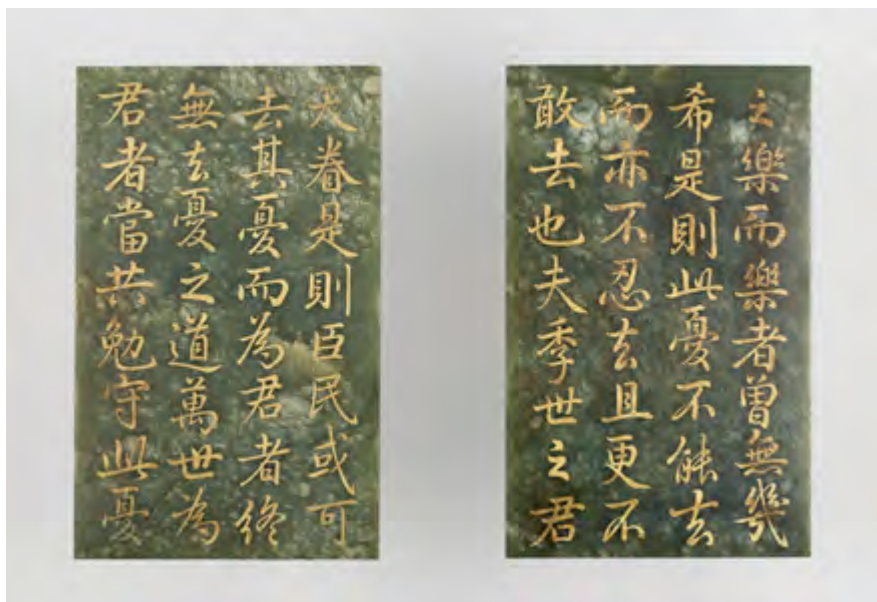 之樂而樂者曾無幾
希是則此憂不能去
而亦不忍去且更不
敢去也夫季世之君
天眷是則臣民或可
去其憂而為君者終
無去憂之道萬世為
君者當共勉守此憂